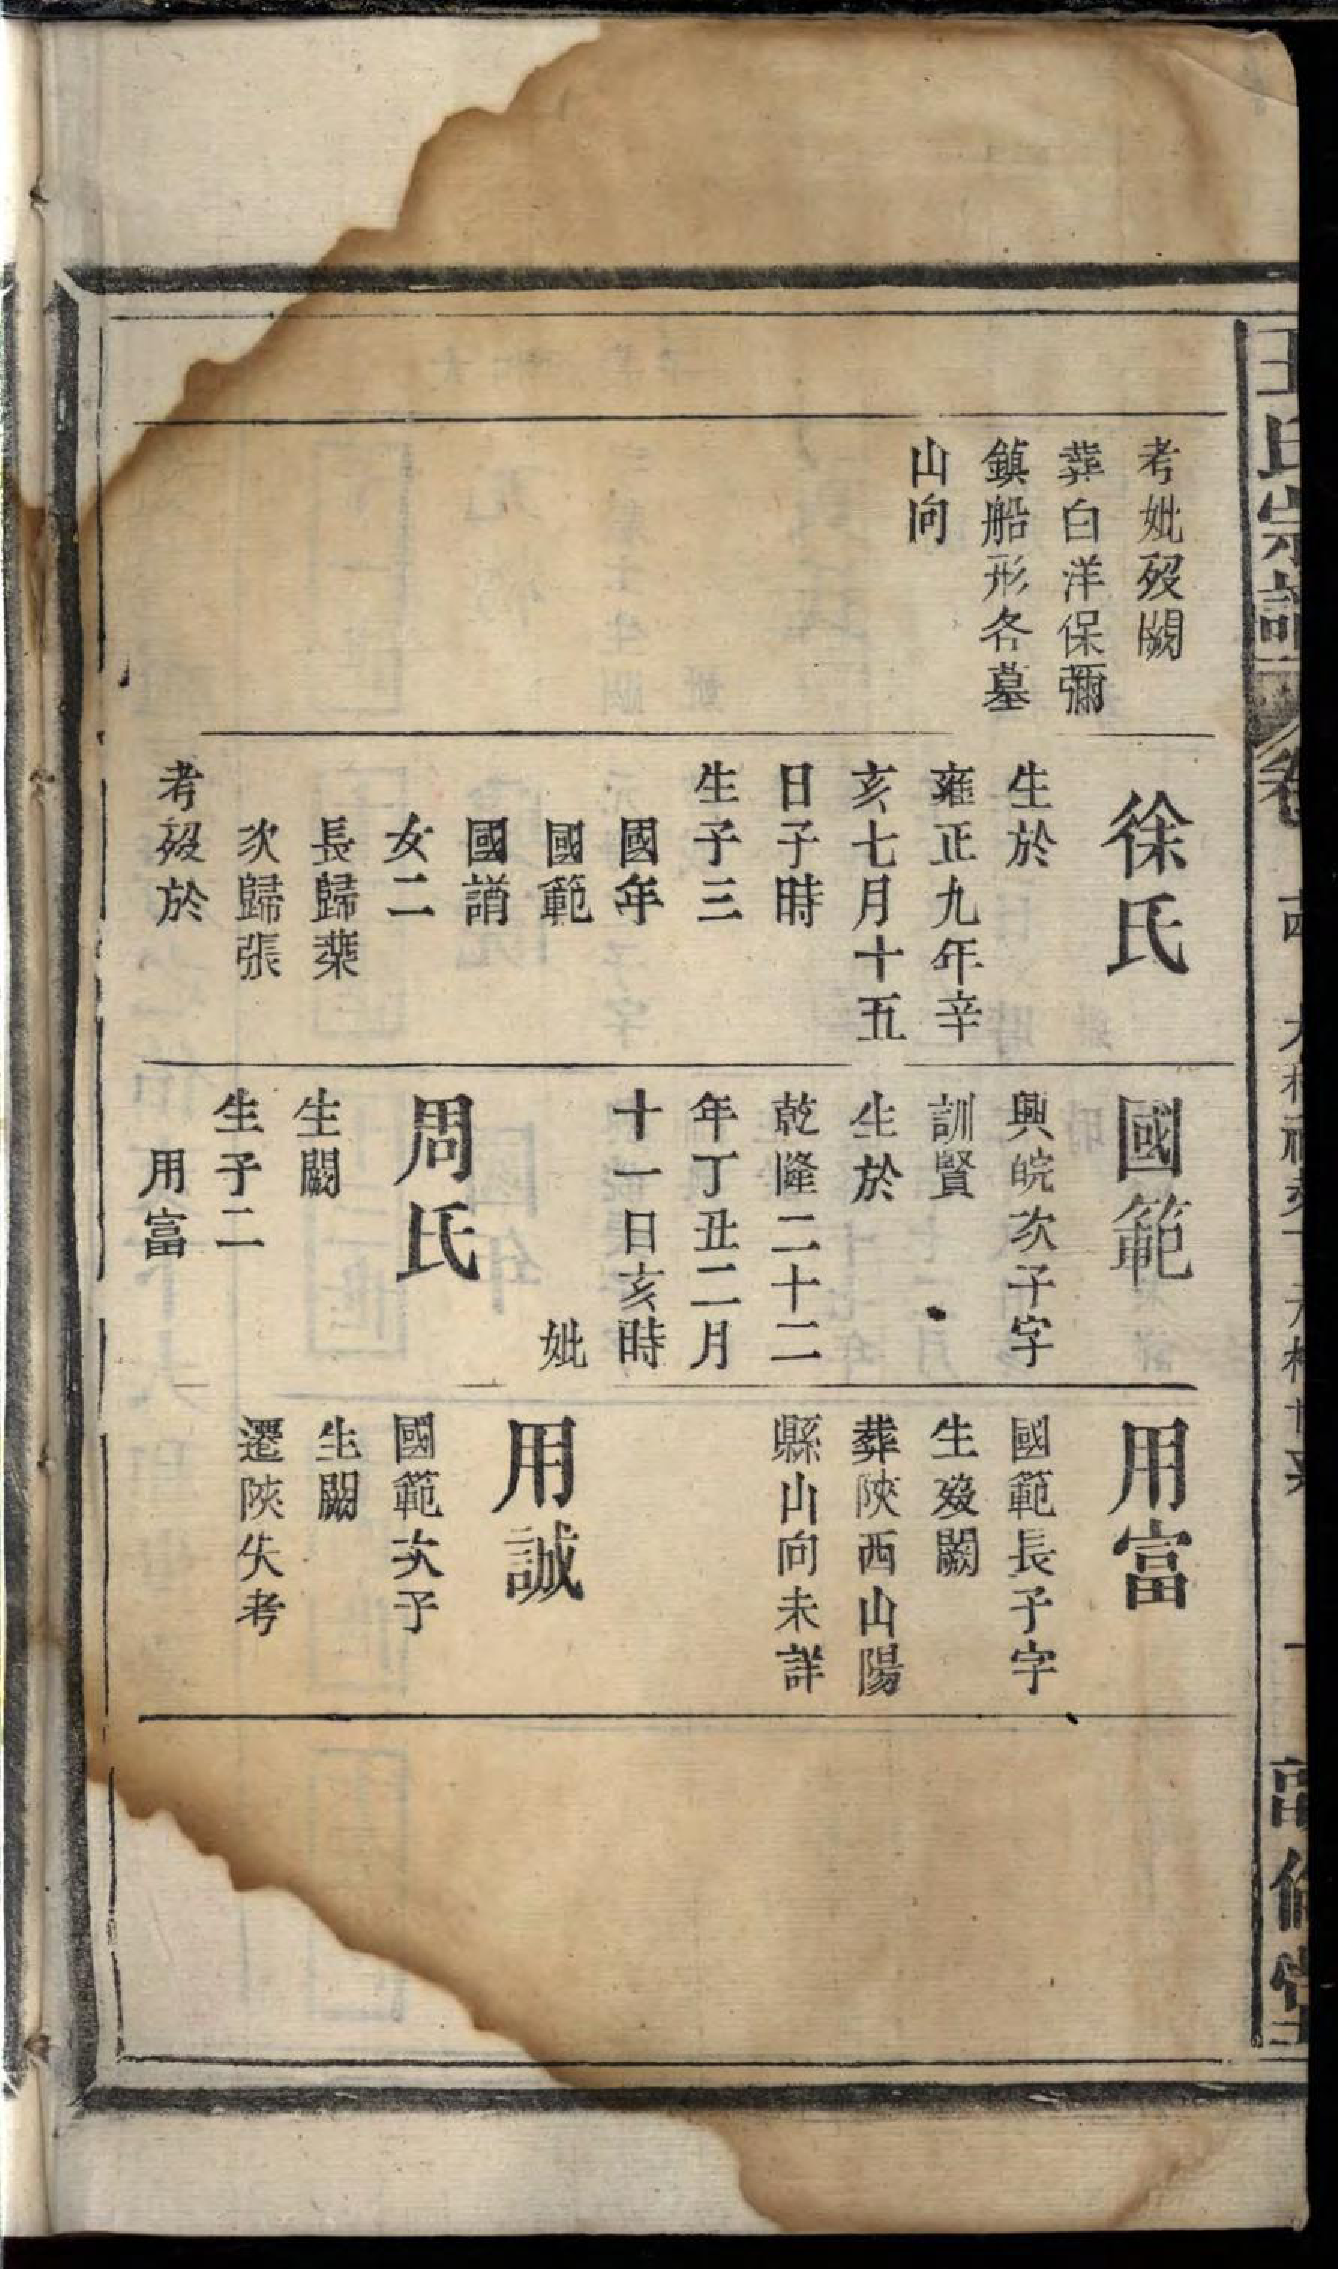 王氏宗譜
卷
考妣歿闕
葬白洋保彌
鎮船形各墓
山向
徐氏
生於
雍正九年辛
亥七月十五
日子時
生子三
國年
國範
國誚
女二
長歸葉
次歸張
考歿於
國範
興皖次子字
訓賢
生於
乾隆二十二
年丁丑二月
十一日亥時
妣
周氏
生闕
生子二
用富
用富
國範長子字
生歿闕
葬陝西山陽
縣山向未詳
用誠
國範次子
生闕
遷陝失考